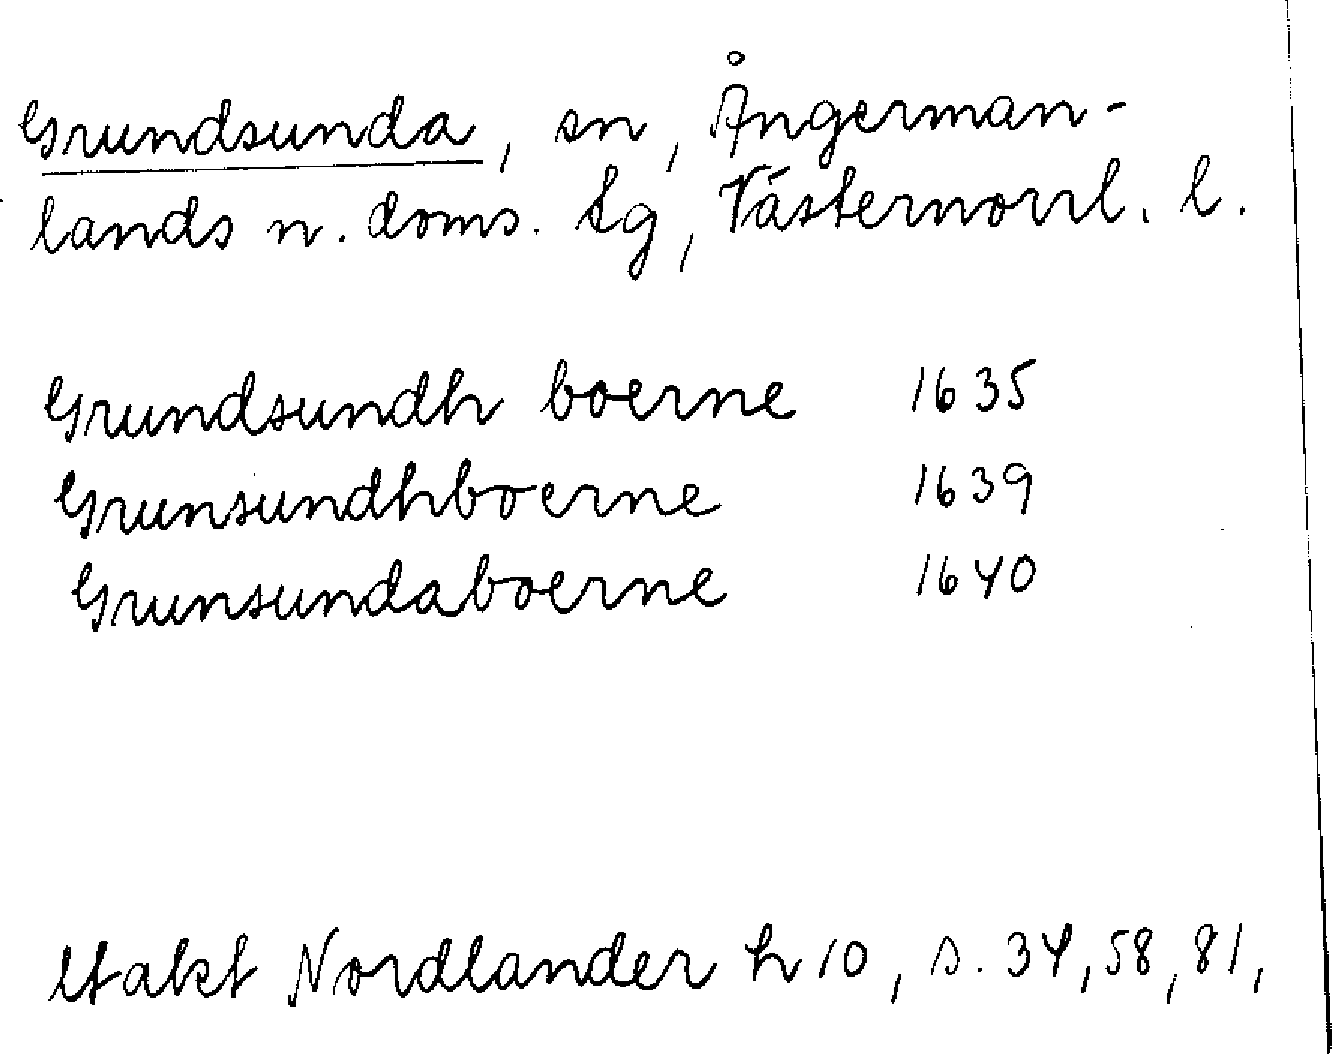 Grundsunda, sn, Ångerman-
lands n. doms. tg, Västernorrl. l.
Grundsundh boerne 1635
Grunsundhboerne 1639
Grunsundaboerne 1640
Utakt Nordlander h 10, s. 34, 58, 81,